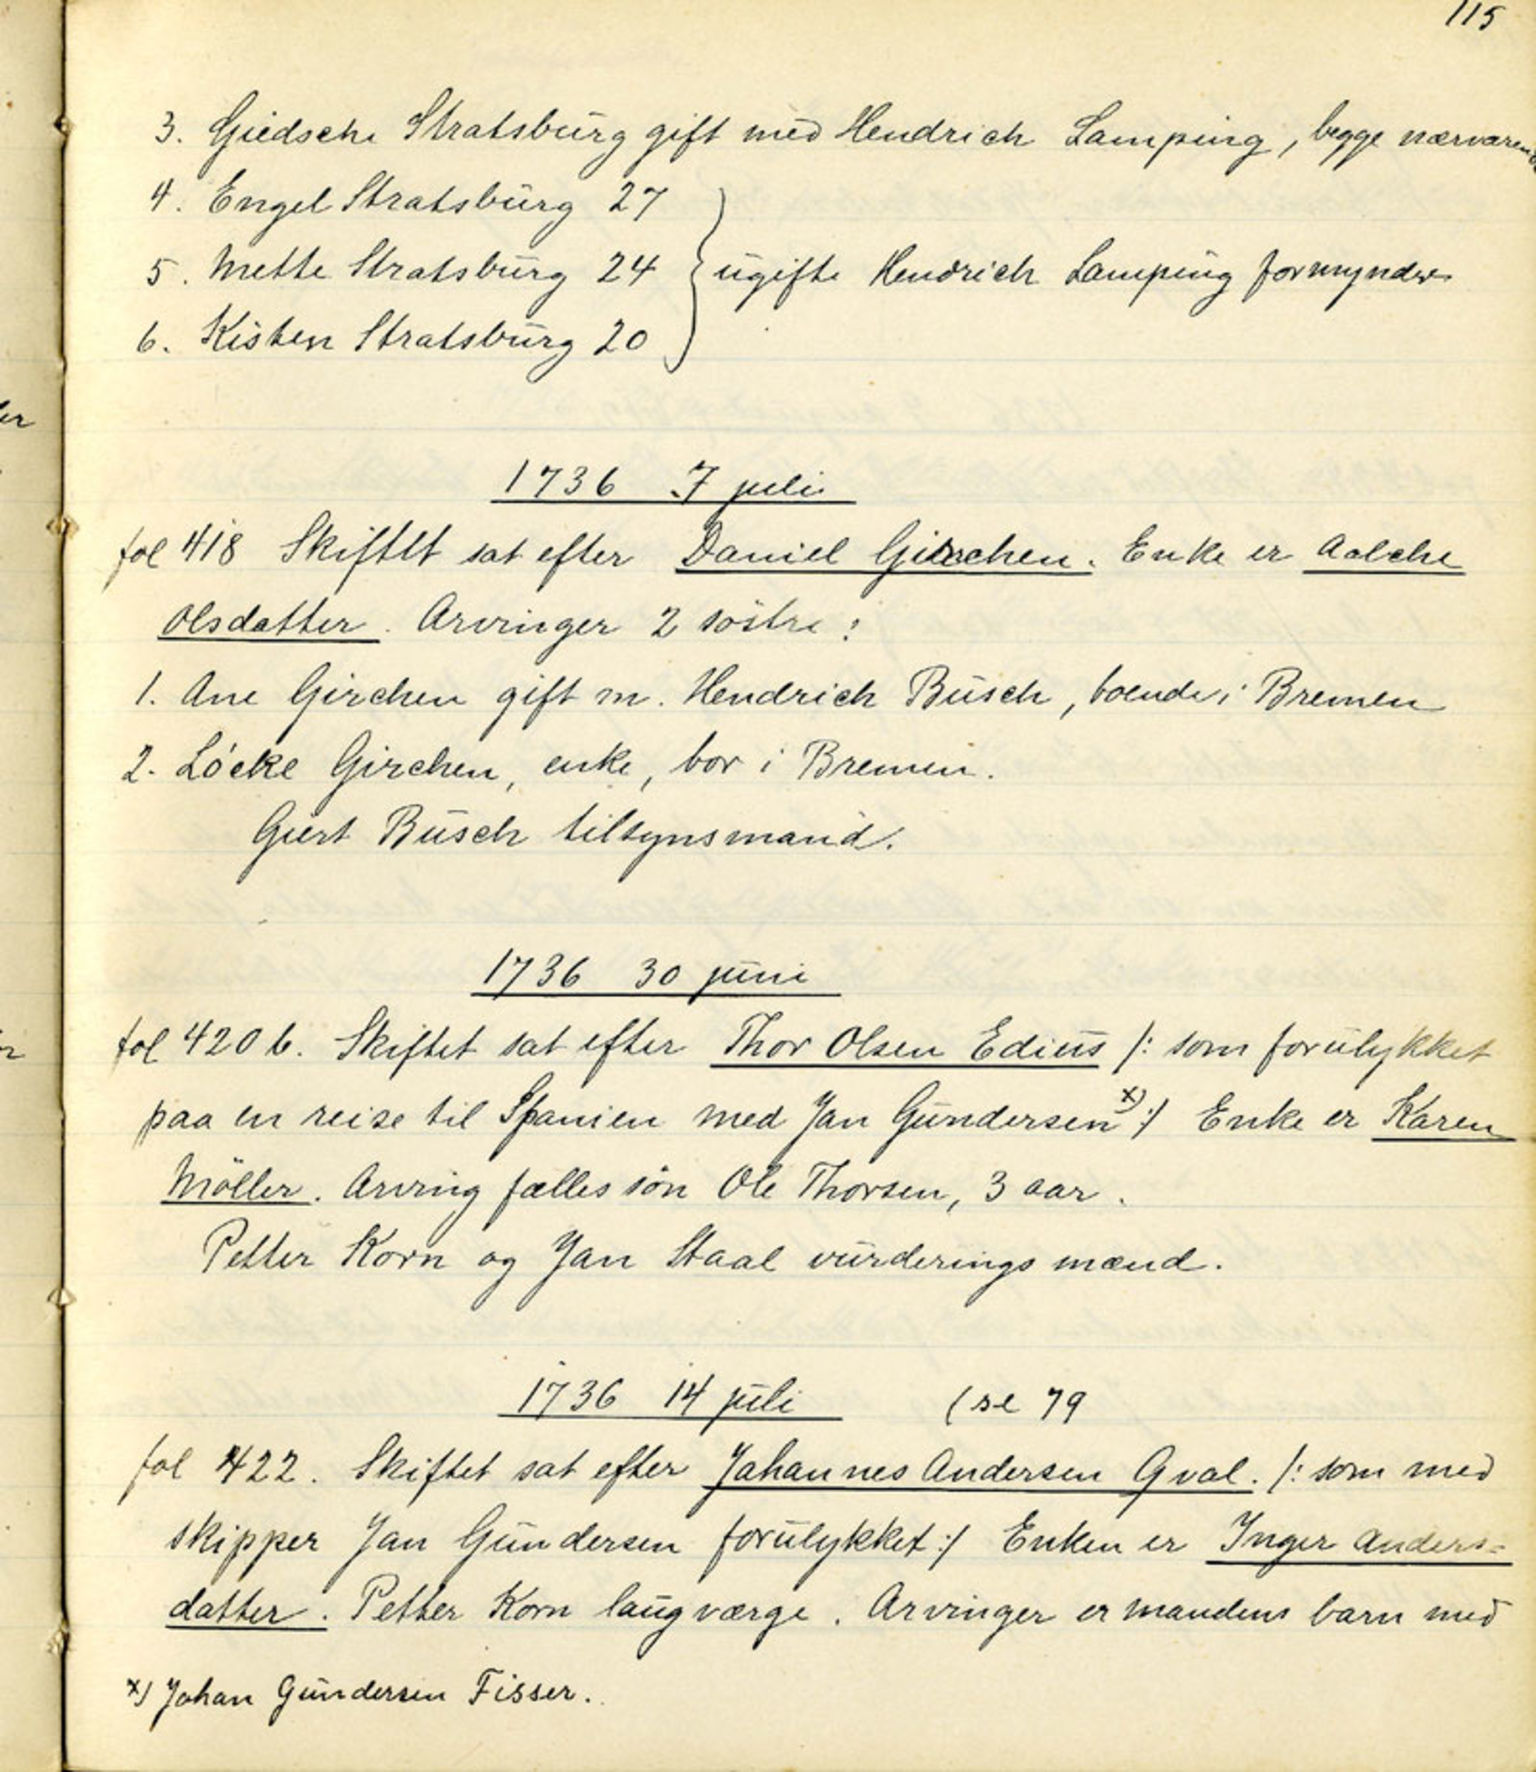 115
3. Giedsche Stratsburg gift med Hendrich Lamping, begge nærværende
4. Engel Stratsburg 27
5. Mette Stratsburg 24 } ugifte Hendrich Lamping formynder
6. Kisten Stratsburg 20
1736 7 juli
fol 418 Skiftet sat efter Daniel Girschen. Enke er Aalche
Olsdatter. Arvinger 2 söstre:
1. Ane Girchen gift m. Hendrich Busch, boende i Bremen
2. Löcke Girchen, enke, bor i Bremen.
Giert Busch tilsynsmand.
1736 30 juni
fol 420 b. Skiftet sat efter Thor Olsen Edius /: som forulykket
paa en reise til Spanien med Jan Gundersen x) :/ Enke er Karen
Möller. Arving fælles sön Ole Thorsen, 3 aar.
Petter Korn og Jan Staal vurderings mænd.
1736 14 juli (se 79
fol 422. Skiftet sat efter Johannes Andersen Qval. /: som med
skipper Jan Gundersen forulykket :/ Enken er Inger Anders=
datter. Petter Korn laugværge. Arvinger er mandens barn med
x) Johan Gundersen Fisser.